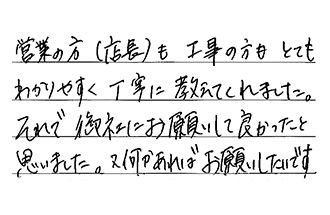 営業の方（店長）も 工事の方も とても
わかりやすく 丁寧に 教えてくれました。
それで 御社にお願いして良かったと
思いました。又何かあれば お願いしたいです